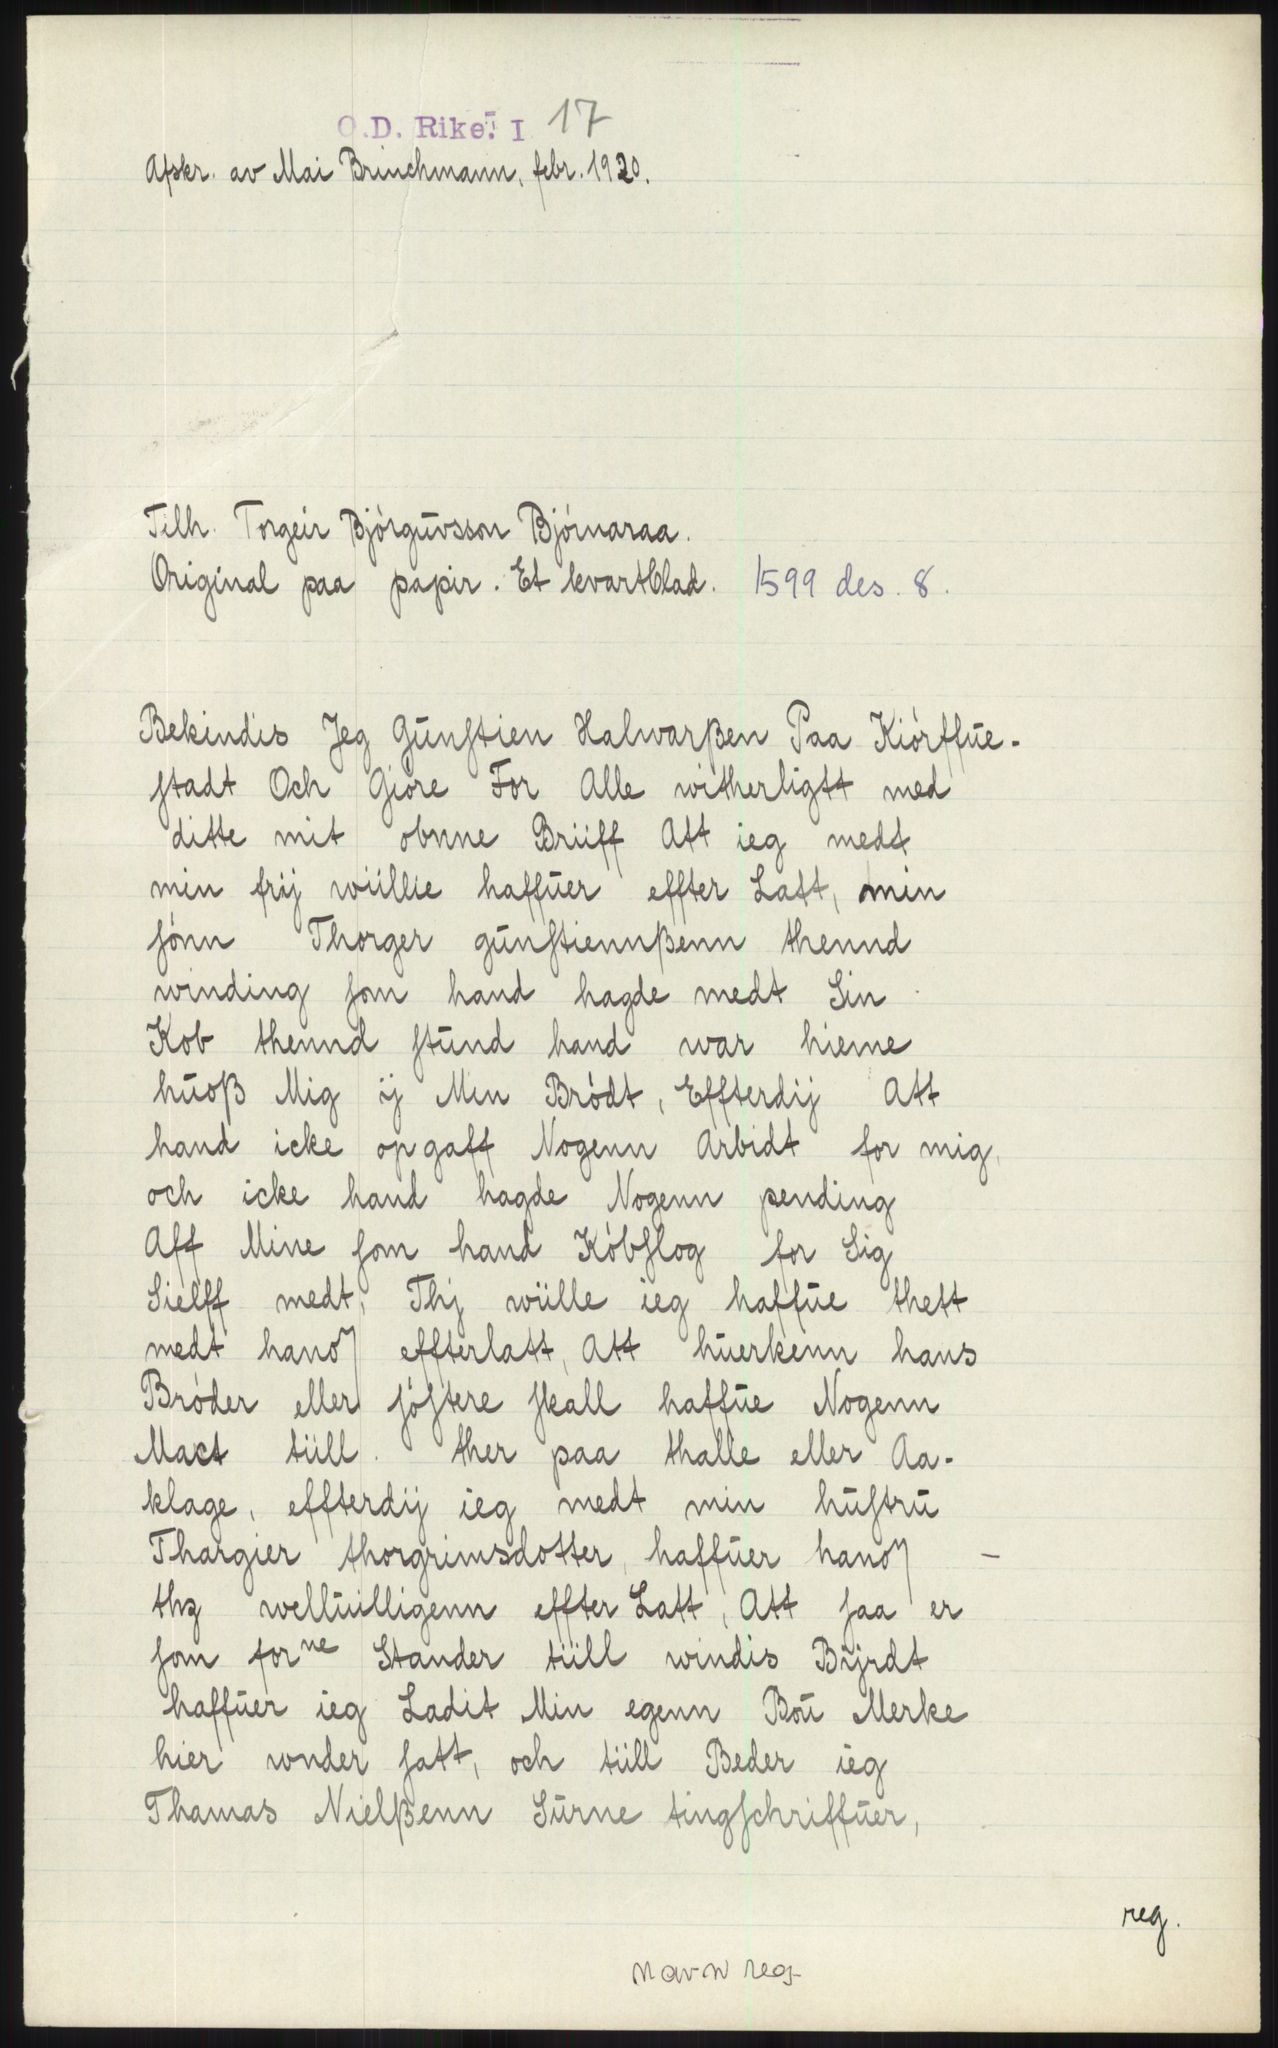 O.D. Rike: I 17
Afskr. av Mai Brinchmann, febr. 1920.
Tilh. Torgeir Bjórgūvsson Bjórnaraa.
Original paa papir. Et kvartblad. 1599 des. 8.
Bekindis Jeg Gūnſtien Halwarßen Paa Kiórffūe-
ſtadt Och Gióre For Alle witherligtt med
ditte mit obnne Briiff Att ieg medt
min frij wiillie haffūer effter Latt, min
ſónn Thorger gūnſtiennßenn thennd
winding ſom hand hagde medt Sin
Kob thennd ſtūnd hand war hieme
hūoß Mig ij Min Bródt, Effterdij Att
hand icke op gaff Nogenn Arbidt for mig,
och icke hand hagde Nogenn pending
Aff Mine ſom hand Kóbſlog for Sig
Sielff medt, Thj wiille ieg haffūe thett
medt hanoꝯ effterlatt, Att hūerkenn hans
Bróder eller ſóſtere ſkall haffūe Nogenn
Mact tiill. ther paa thalle eller Aa-
klage, effterdij ieg medt min hūſtrū
Thargier thorgrimsdotter, haffūer hanoꝯ –
thz wellūilligenn effter Latt, Att ſaa er
ſom forⁿᵉ Stander tiill windis Bijrdt
haffūer ieg Ladit Min egenn Boū Merke
hier wnder ſatt, och tiill Beder ieg
Thamas Nielßenn Sūrne tingſchriffūer,
reg.
navn reg.